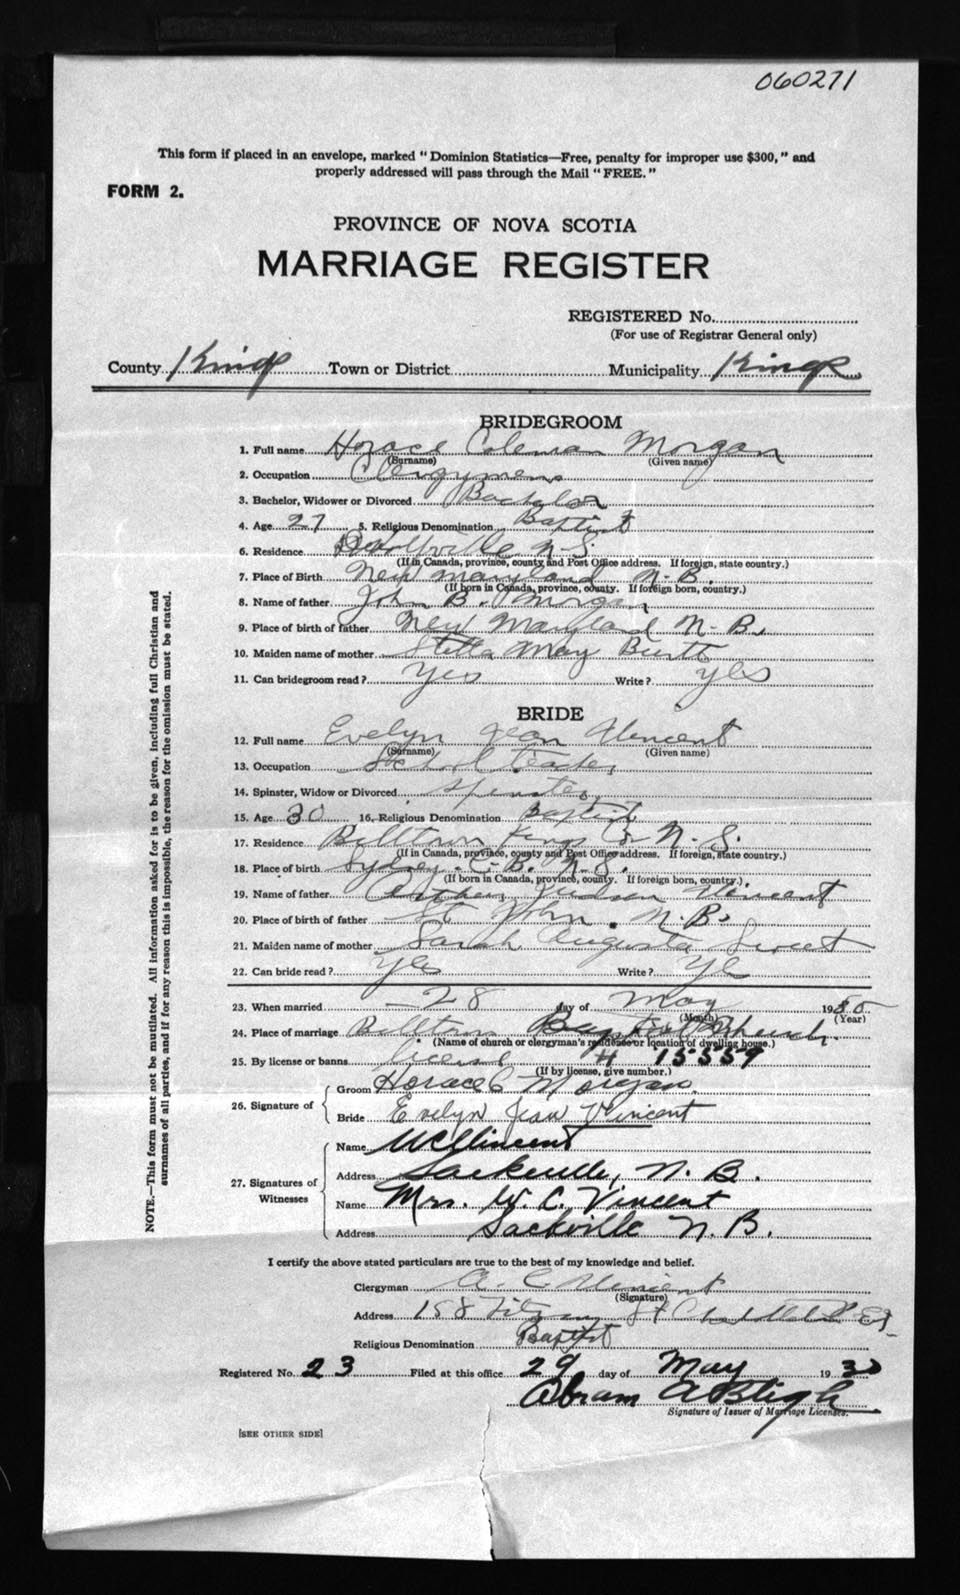 060271
This form if placed in an envelope, marked "Dominion Statistics—Free, penalty for improper use $300," and
properly addressed will pass through the Mail "FREE."
FORM 2.
PROVINCE OF NOVA SCOTIA
MARRIAGE REGISTER
REGISTERED No.
(For use of Registrar General only)
County Kings Town or District Municipality Kings
BRIDEGROOM
1. Full name Horace Coleman Morgan
(Surname) (Given name)
2. Occupation Clergyman
3. Bachelor, Widower or Divorced Bachelor
4. Age 27 5. Religious Denomination Baptist
6. Residence Wolfville N.S.
(If in Canada, province, county and Post Office address. If foreign, state country.)
7. Place of Birth New Maryland N.B.
(If born in Canada, province, county. If foreign born, country.)
8. Name of father John B. Morgan
9. Place of birth of father New Maryland N.B.
10. Maiden name of mother Stella May
11. Can bridegroom read? Yes Write? yes
BRIDE
12. Full name Evelyn Jean Vincent
(Surname) (Given name)
13. Occupation School teacher
14. Spinster, Widow or Divorced Spinster
15. Age 30 16. Religious Denomination Baptist
17. Residence Billtown Kings Co N.S.
(If in Canada, province, county and Post Office address. If foreign, state country.)
18. Place of birth Sydney. C.B. N.S.
(If born in Canada, province, county. If foreign born, country.)
19. Name of father Arthur Judson Vincent
20. Place of birth of father St John. N.B.
21. Maiden name of mother Sarah Augusta Sweet
22. Can bride read? Yes Write? Ye
23. When married 28 day of May 1930
(Month) (Year)
24. Place of marriage Billtown Baptist Church.
(Name of church or clergyman's residence or location of dwelling house.)
25. By license or banns license # 15559
(If by license, give number.)
26. Signature of Groom Horace C Morgan
Bride Evelyn Jean Vincent
27. Signatures of Witnesses Name W C Vincent
Address Sackville, N.B.
Name Mrs. W. C. Vincent
Address Sackville N.B.
I certify the above stated particulars are true to the best of my knowledge and belief.
Clergyman A. C Vincent
(Signature)
Address 158
Religious Denomination Baptist
Registered No. 23 Filed at this office 29 day of May 1930
Abram A Bligh
Signature of Issuer of Marriage Licenses.
[SEE OTHER SIDE]
NOTE.—This form must not be mutilated. All information asked for is to be given, including full Christian and
surnames of all parties, and if for any reason this is impossible, the reason for the omission must be stated.